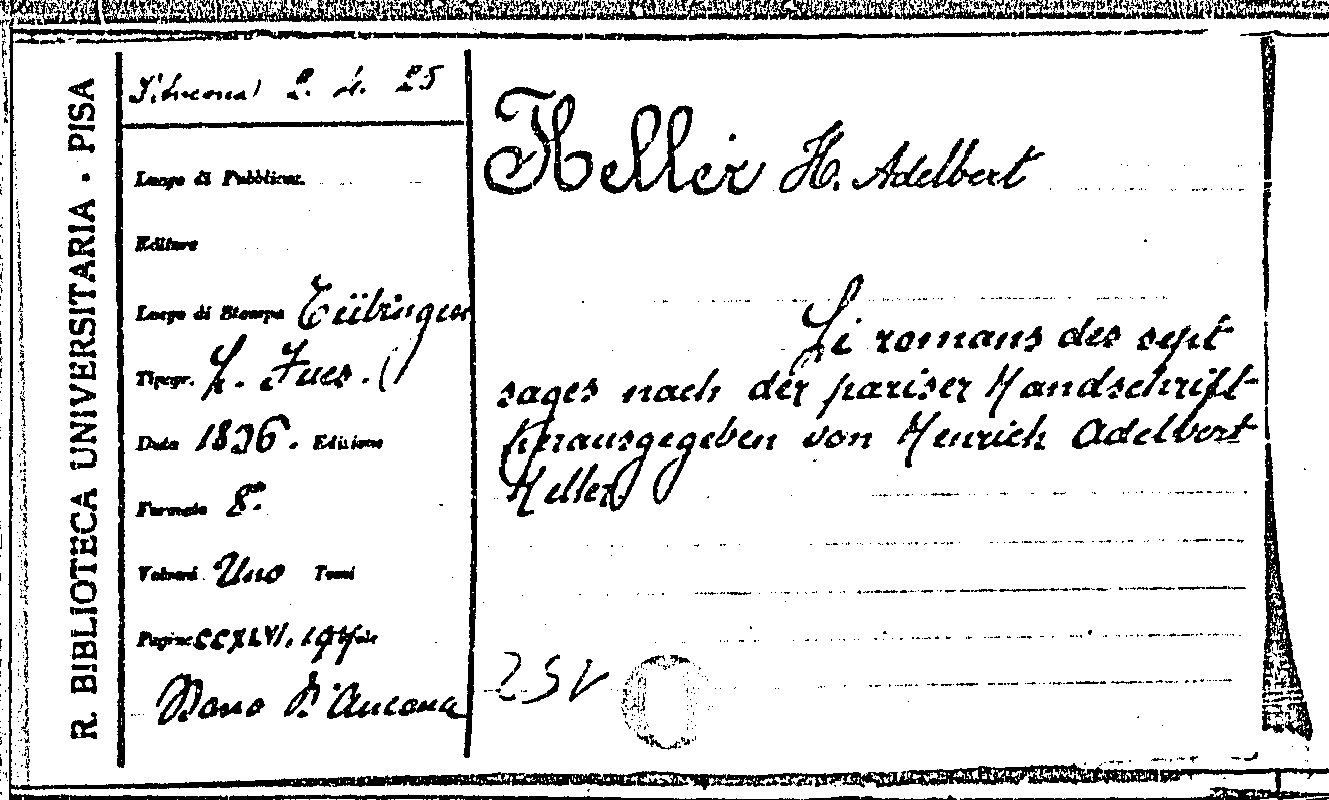 R. BIBLIOTECA UNIVERSITARIA · PISA
2. 4. 25
Luogo di Pubblicaz.
Editore
Luogo di Stampa Tübingen
Tipogr. L. Fues.
Data 1836. Edizione
Formato 8°
Volumi Uno Tomi
Pagine CCXLVI.
Dono D'Ancona
Keller H. Adelbert
Li romans des sept
sages nach der pariser Handschrift
herausgegeben von Heinrich Adelbert
Keller